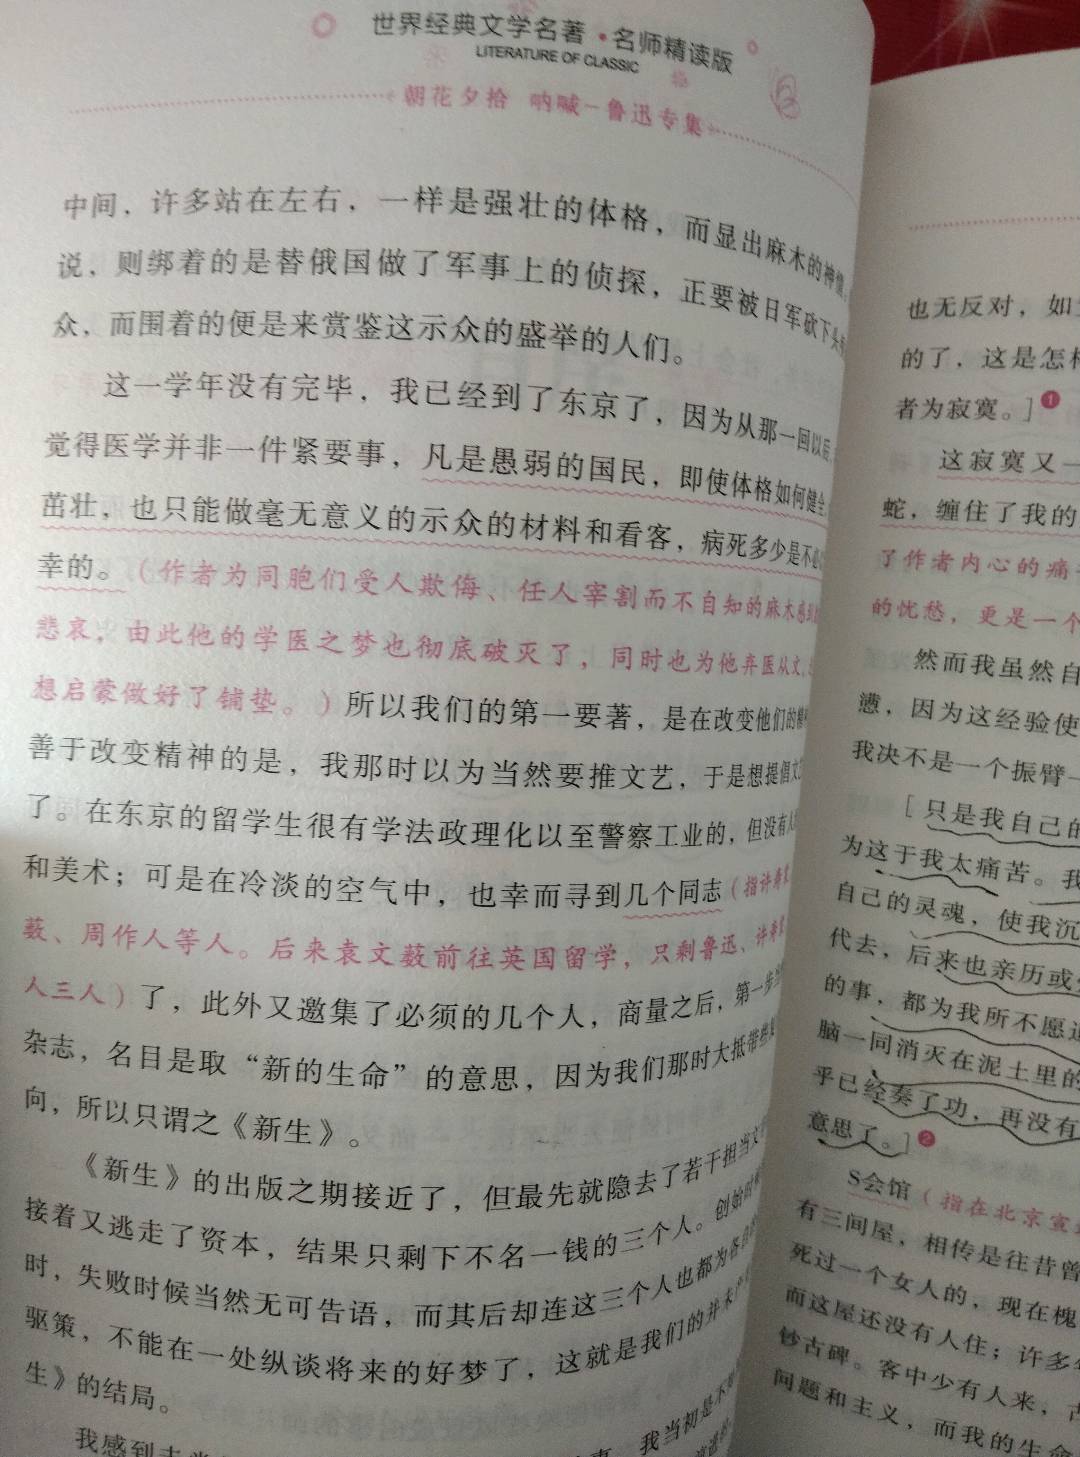 世界经典文学名著·名师精读版
LITERATURE OF CLASSIC
朝花夕拾 呐喊—鲁迅专集
中间，许多站在左右，一样是强壮的体格，而显出麻木的神情。
说，则绑着的是替俄国做了军事上的侦探，正要被日军砍下头
众，而围着的便是来赏鉴这示众的盛举的人们。
这一学年没有完毕，我已经到了东京了，因为从那一回以后，
觉得医学并非一件紧要事，凡是愚弱的国民，即使体格如何健全
茁壮，也只能做毫无意义的示众的材料和看客，病死多少是不必
幸的。（作者为同胞们受人欺侮、任人宰割而不自知的麻木感到
悲哀，由此他的学医之梦也彻底破灭了，同时也为他弃医从文，
想启蒙做好了铺垫。）所以我们的第一要著，是在改变他们的
善于改变精神的是，我那时以为当然要推文艺，于是想提倡文
了。在东京的留学生很有学法政理化以至警察工业的，但没有人
和美术；可是在冷淡的空气中，也幸而寻到几个同志（指许寿
薮、周作人等人。后来袁文薮前往英国留学，只剩鲁迅、许寿
人三人）了，此外又邀集了必须的几个人，商量之后，第一步
杂志，名目是取“新的生命”的意思，因为我们那时大抵带些
向，所以只谓之《新生》。
《新生》的出版之期接近了，但最先就隐去了若干担当文
接着又逃走了资本，结果只剩下不名一钱的三个人。创始时
时，失败时候当然无可告语，而其后却连这三个人也都为各自
驱策，不能在一处纵谈将来的好梦了，这就是我们的并未产
生》的结局。
我感到未
我当初是不
也无反对，如
的了，这是怎
者为寂寞。]1
这寂寞又一
蛇，缠住了我的
了作者内心的痛
的忧愁，更是一个
然而我虽然自
懑，因为这经验使
我决不是一个振臂一
[只是我自己的
为这于我太痛苦。我
自己的灵魂，使我沉
代去，后来也亲历或
的事，都为我所不愿
脑一同消灭在泥土里的
乎已经奏了功，再没有
意思了。]2
S会馆（指在北京宣
有三间屋，相传是往昔曾
死过一个女人的，现在槐
而这屋还没有人住；许多
钞古碑。客中少有人来，古
问题和主义，而我的生命